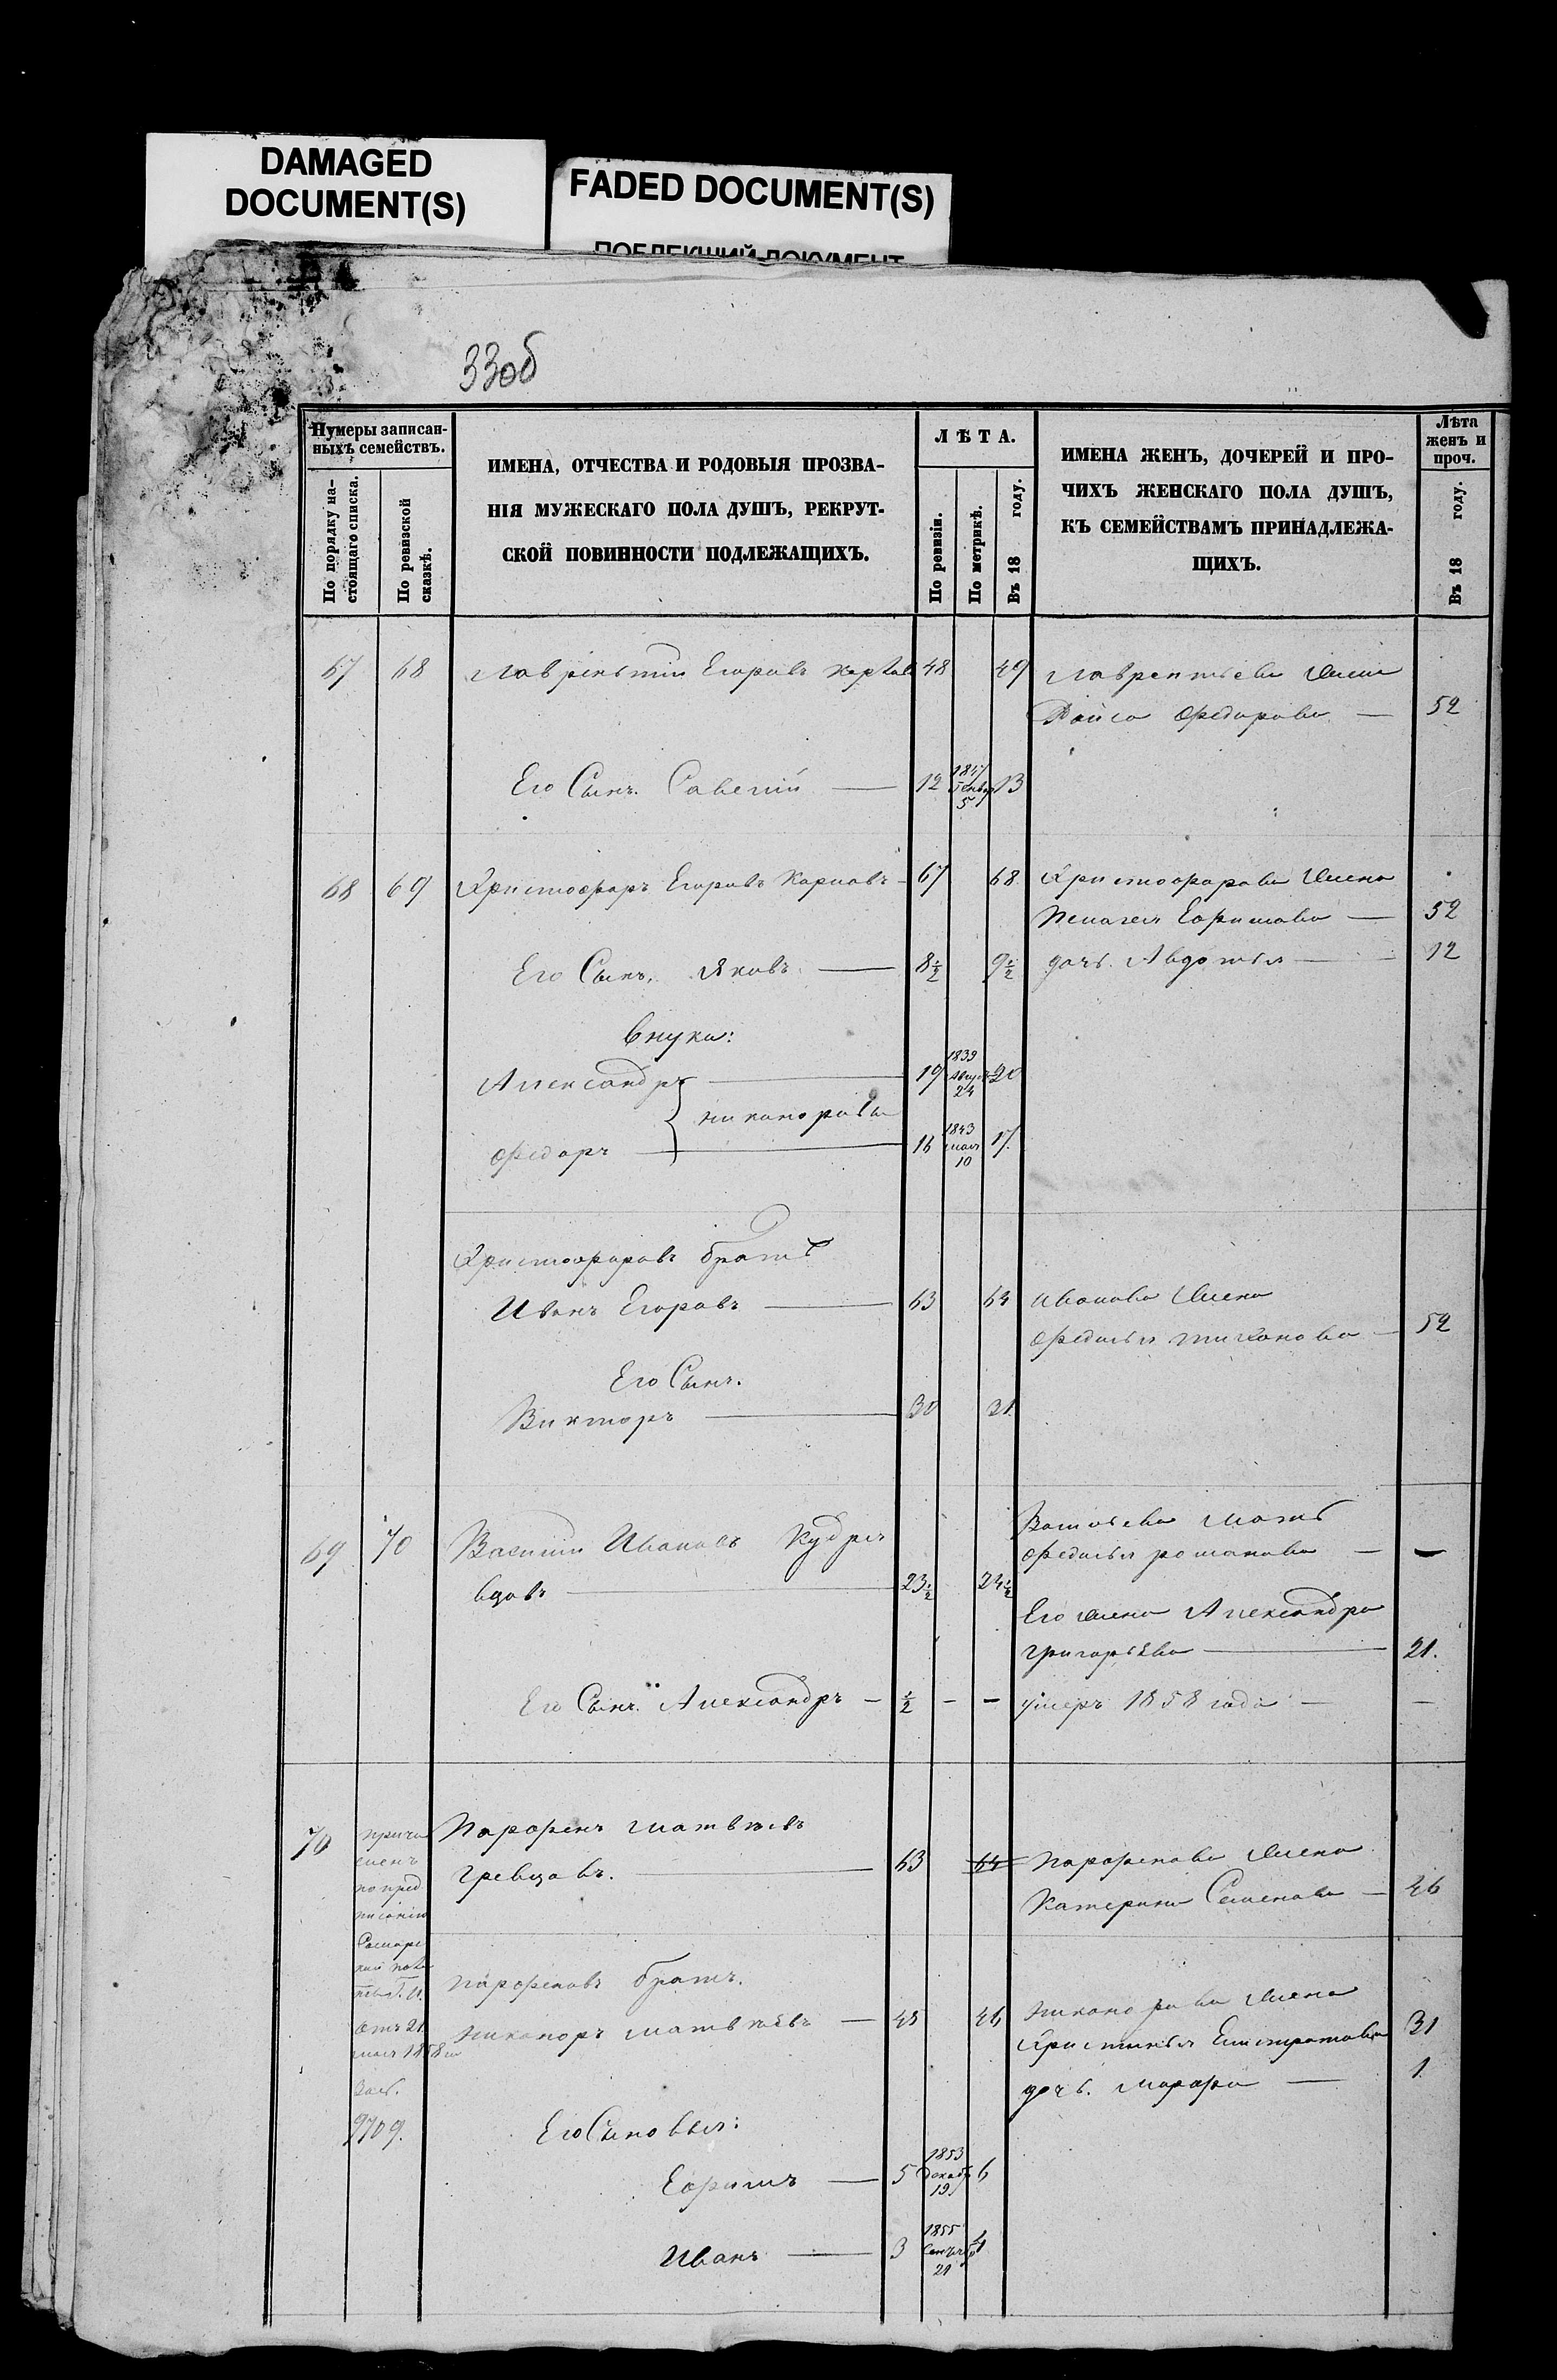 DAMAGED
DOCUMENT(S)
FADED DOCUMENT(S)
ПОБЛЕКШИЙ ДОКУМЕНТ
33об
Нумеры записан-
ныхъ семействъ.
По порядку на-
стоящаго списка.
По ревизской
сказкѣ.
ИМЕНА, ОТЧЕСТВА И РОДОВЫЯ ПРОЗВА-
НІЯ МУЖЕСКАГО ПОЛА ДУШЪ, РЕКРУТ-
СКОЙ ПОВИННОСТИ ПОДЛЕЖАЩИХЪ.
ЛѢТА.
По ревизіи.
По метрикѣ.
Въ 18 году.
ИМЕНА ЖЕНЪ, ДОЧЕРЕЙ И ПРО-
ЧИХЪ ЖЕНСКАГО ПОЛА ДУШЪ,
КЪ СЕМЕЙСТВАМЪ ПРИНАДЛЕЖА-
ЩИХЪ.
Лѣта
женъ и
проч.
Въ 18 году.
67 68 Лаврентий Егоровъ 48 49 Лаврентьева жена
Раиса Федорова — 52
Его Сынъ Савелий — 12 1847 5 13
68 69 Христофоръ Егоровъ Карповъ 67 68 Христофорова жена
Пелагея Ефимова — 52
Его Сынъ, Яковъ — 8½ 9½ дочь Авдотья — 12
Внуки:
Александръ — 19 1839 Август 24 20
Никаноровы
Федоръ — 16 1843 мая 10 17
Христофоровъ братъ
Иванъ Егоровъ — 63 64 Иванова жена
Федосья Тиханова — 52
Его Сынъ.
Викторъ — 30 31
69 70 Василий Ивановъ Кудря
вцовъ — 23½ 24½
Васильева мать
Федосья Романова — —
Его жена Александра
Григорьева — 21.
Его Сынъ Александръ — ½ — — умеръ 1858 года — —
70 Парфенъ Матвѣевъ
Гревцовъ. — 63 64 Парфенова жена
Катерина Семенова — 46
причи
сленъ
по пред
писанию
отъ 21
мая 1858
за №.
9709.
Парфеновъ братъ.
Никаноръ Матвѣевъ — 45 46 Никанорова жена
Христинья Емстратова 31
дочь. Марфа — 1
Его Сыновья:
Ефимъ — 5 1853 Декабр 19 6
Иванъ — 3 1855 Сентяб 21 4